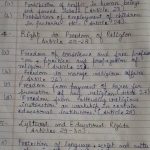 (a) Prohibition of traffic in human beings
and forced labour (Article 23)
(b) Prohibition of Employment of children
in factories etc. (Article 24)
4. Right to Freedom of Religion
(Article 25-28)
(a) Freedom of conscience and free profession
practice and propagation of
religion (Article 25)
(b) Freedom to manage religious affairs
(Article 26)
(c) Freedom from payment of taxes for
promotion of any religion (Article 27)
(d) Freedom from attending religious
instruction or worship in certain
educational institutions (Article 28)
5. Cultural and Educational Rights
(Articles 29-30)
(a) Protection of language, script and culture